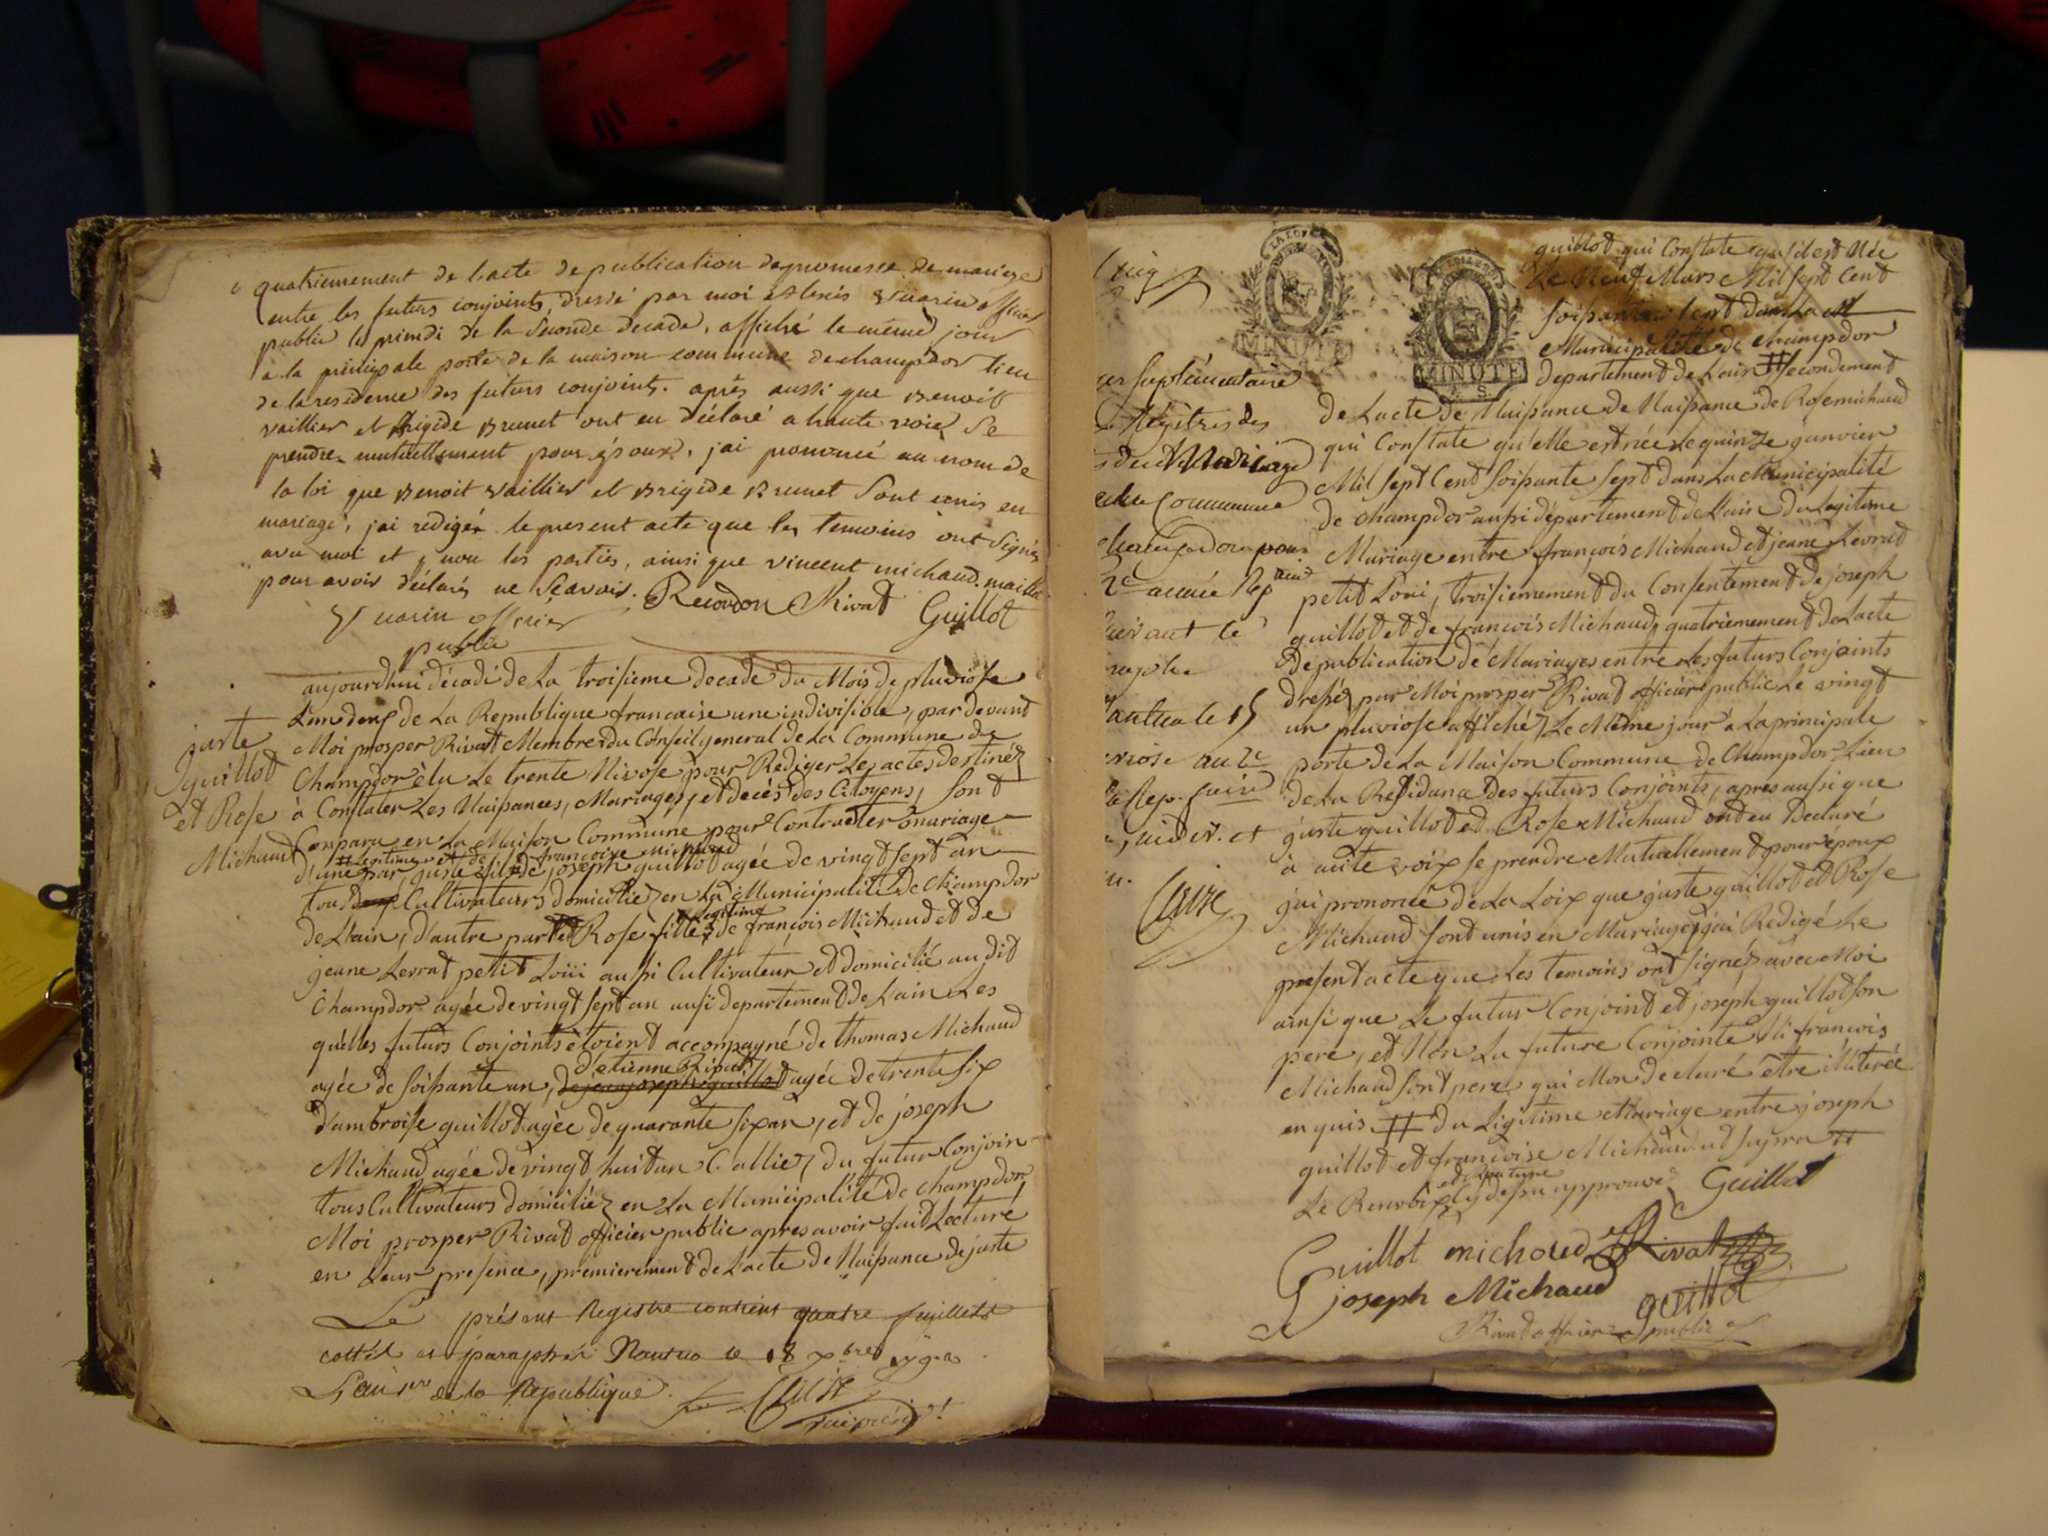 quatriemement de l'acte de publication de promesse de mariage
entre les futurs conjoints dressé par moi alexis vuarin officier
public le primdi de la seconde decade, affiché le même jour
a la principale porte de la maison commune de champdor lieu
de la residence des futurs conjoints. après aussi que Benoitt
vaillier et Brigide Brunet ont eu déclaré a haute voix se
prendre mutuellement pour époux, j'ai prononcé au nom de
la loi que Benoit vaillier et Brigide Brunet sont unis en
mariage, j'ai redigér le present acte que les temoins ont signés
avec moi et non les parties, ainsi que vincent michaud maillet
pour avoir déclarés ne scavoir. Reordon Rivat Guillot
Vuarin officier
public
aujourdhui décadi de La troisieme decade du Mois de pluviose
L'an deux de La Republique francaise une indivisible, par devant
Moi prosper Rivat Membre du Conseil general de La Commune de
Champdor élu Le trente Nivose pour Rediger Les actes destinéz
à Constater Les Naissances, Mariages, et decès des Citoyens, sont
Comparu en La Maison Commune pour Contracter mariage
juste
guillot
et Rose
Michaud
# Legitime et de francoise Michaud
d'une par juste fils # de joseph guillot agée de vingt sept an
tous deux Cultivateurs domiciliéz en La Municipalité de Champdor
Legitime
de L'ain, d'autre part et Rose fille de françois Michaud et de
jeane Levrat petit Loüi aussi Cultivateur et domicilié au dit
Champdor agée de vingt sept an ausi departement de L'ain Les
quelles futurs Conjoints étoient accompagné de thomas Michaud
d'etienne Rivat
agée de soissante an, de jean joseph guillot agée de trente six
d'ambroise guillot agée de quarante six an, et de joseph
Michaud agée de vingt huit an alliéz du futur Conjoin
tous Cultivateurs domiciliéz en La Municipalité de Champdor
Moi prosper Rivat officier public apres avoir fait Lecture
en Leur presence, premierement de L'acte de Naissance de juste
Le présent Registre contient quatre feuillets
cottés et paraphés Nantua le 18 xbre 1792
L'an 1er de la Republique.
guillot qui Constate qu'il est Née
Le Neuf Mars Mil sept Cent
soissante sept dans La M
Municipalité de champdor
departement de L'ain # secondement
de L'acte de Naissance de Naissance de Rose michaud
qui Constate qu'elle est née Le quinze janvier
Mil sept Cent soissante sept dans La Municipalité
de champdor aussi département de L'ain du Legitime
Mariage entre françois Michaud et jeane Levrat
petit Loui, troisiemement du Consentement de joseph
guillot et de francois Michaud, quatriemement de L'acte
de publication de Mariages entre les futurs Conjoints
dressé par Moi prosper Rivat officier public Le vingt
un pluviose affiché Le Même jour a La principale
porte de La Maison Commune de Champdor Lieu
de La Residance des futurs Conjoints, apres aussi que
juste guillot et Rose Michaud ont eu Declaré
à aute voix se prendre Mutuellement pour époux
j'ai prononcé de La Loix que juste guillot et Rose
Michaud sont unis en Mariage, j'ai Redigé Le
present acte que Les temoins ont signéz avec Moi
ainsi que Le futur Conjoint et joseph guillot son
pere, et Non La future Conjointe Ni francois
Michaud son pere qui M'on declaré être illiterée
enquis # du Ligitime Mariage entre joseph
guillot et francoise Michaud
et Rature
Le Renvoix cy dessu approuvé Guillot
Guillot michaud Rivat
joseph Michaud guillot
Rivat officier public
supplémentaire
Régitres des
Mariage
Commune
Champdor pour
2e année Rep
suivant le
Nantua le 15